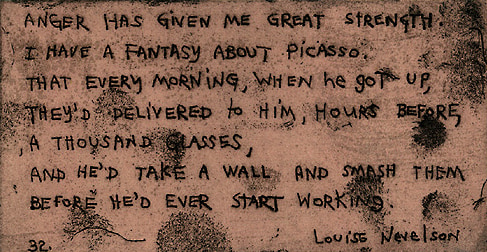 ANGER HAS GiVEN ME GREAT STRENGTH.
I HAVE A FANTASY ABOUT PiCASSO.
THAT EVERY MORNiNG, WHEN he goT UP,
THEY'D DELIVERED to HiM, HOURS BEFORE,
A THOUSAND GLASSES,
AND HE'D TAKE A WALL AND SMASH THEM
BEFORE HE'D EVER START WORKiNG.
LOUiSE NEVELSON
32.